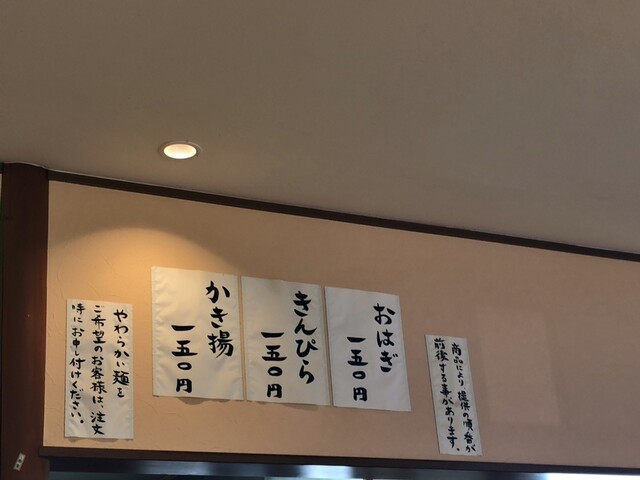 商品により提供の順番が
前後する事があります。
おはぎ
一五〇円
きんぴら
一五〇円
かき揚
一五〇円
やわらかい麺を
ご希望のお客様は、注文
時にお申し付けください。